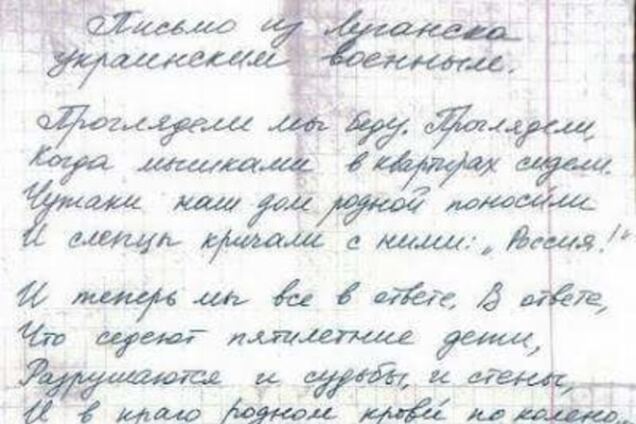 Письмо из Луганска
украинским военным.
Проглядели мы беду. Проглядели,
Когда мышками в квартирах сидели.
Чужаки наш дом родной поносили
И слепцы кричали с ними: „Россия!"
И теперь мы все в ответе. В ответе,
Что седеют пятилетние дети,
Разрушаются и судьбы, и стены,
И в краю родном крови по колено...